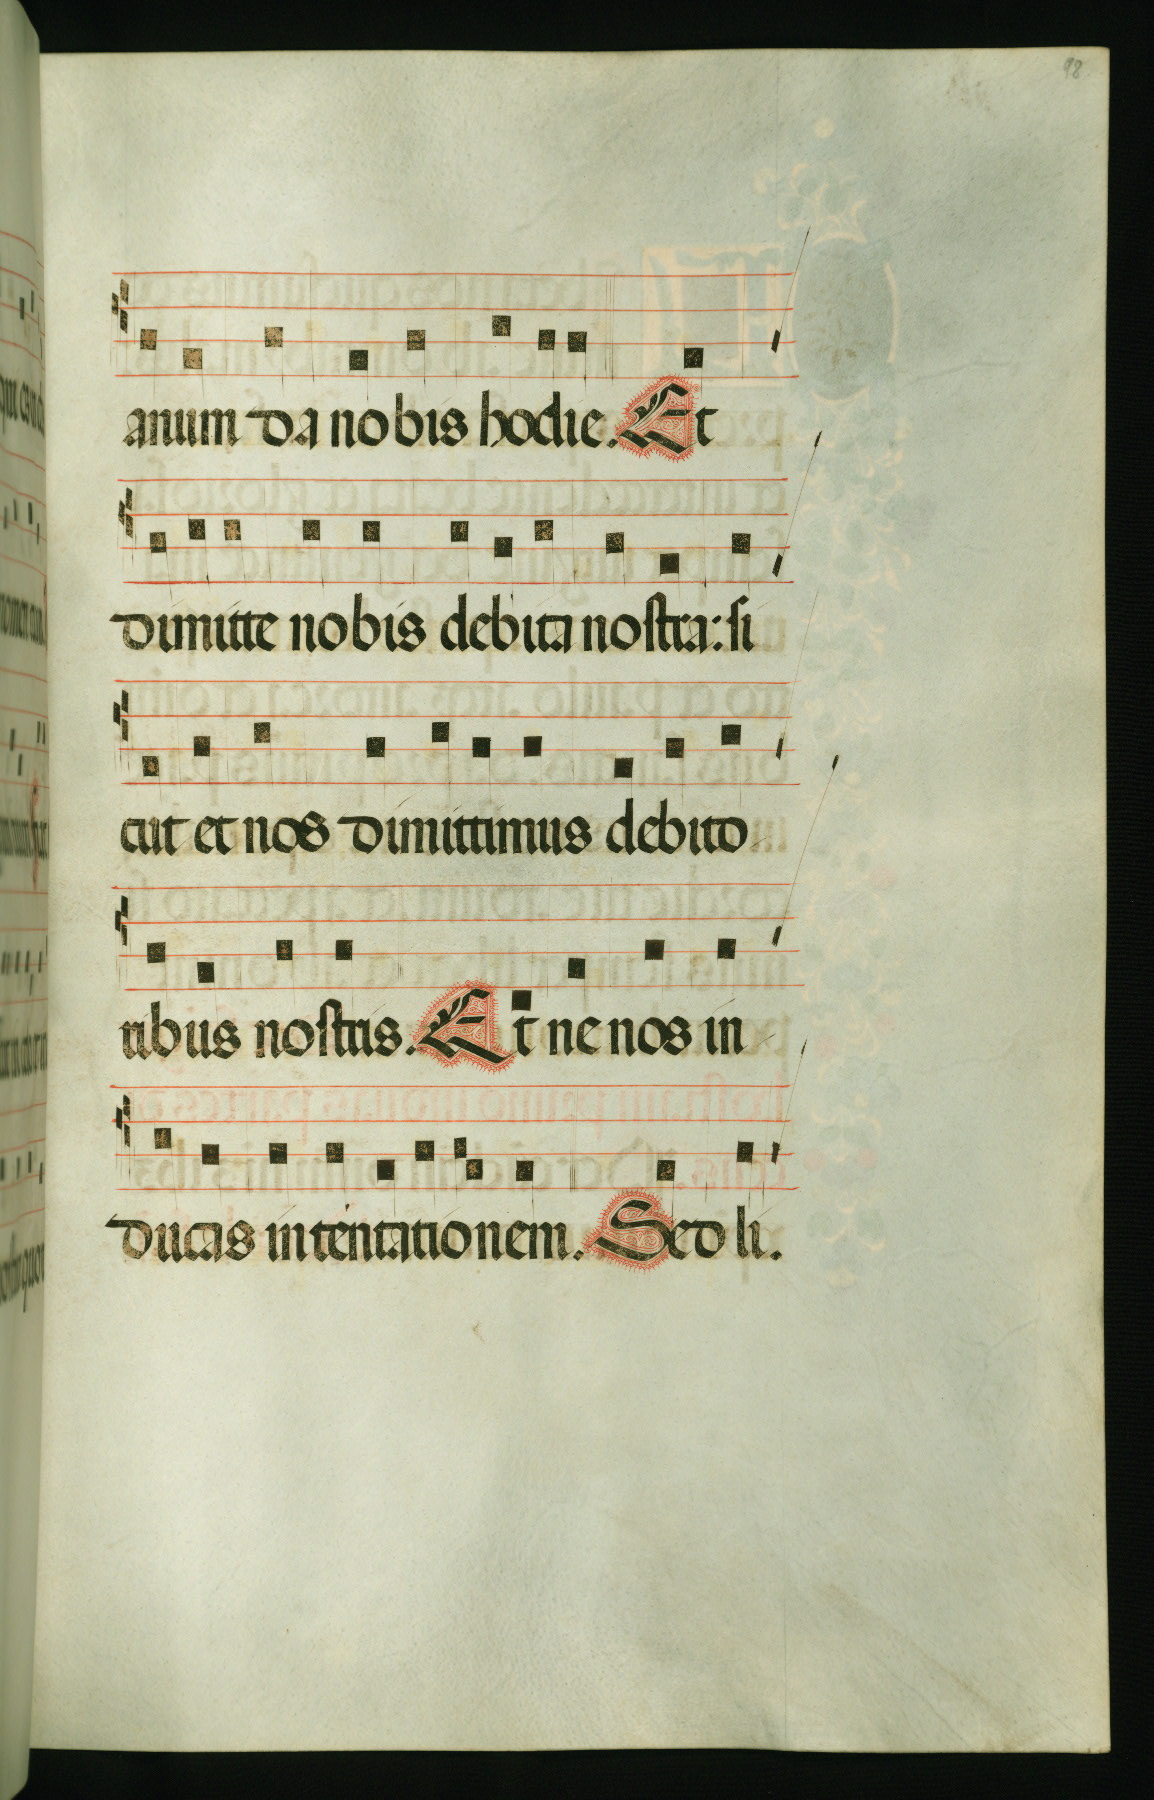 98
anum da nobis hodie. Et
dimitte nobis debita nostra: si
cut et nos dimittimus debito
ribus nostris. Et ne nos in
ducas in tentationem. Sed li.